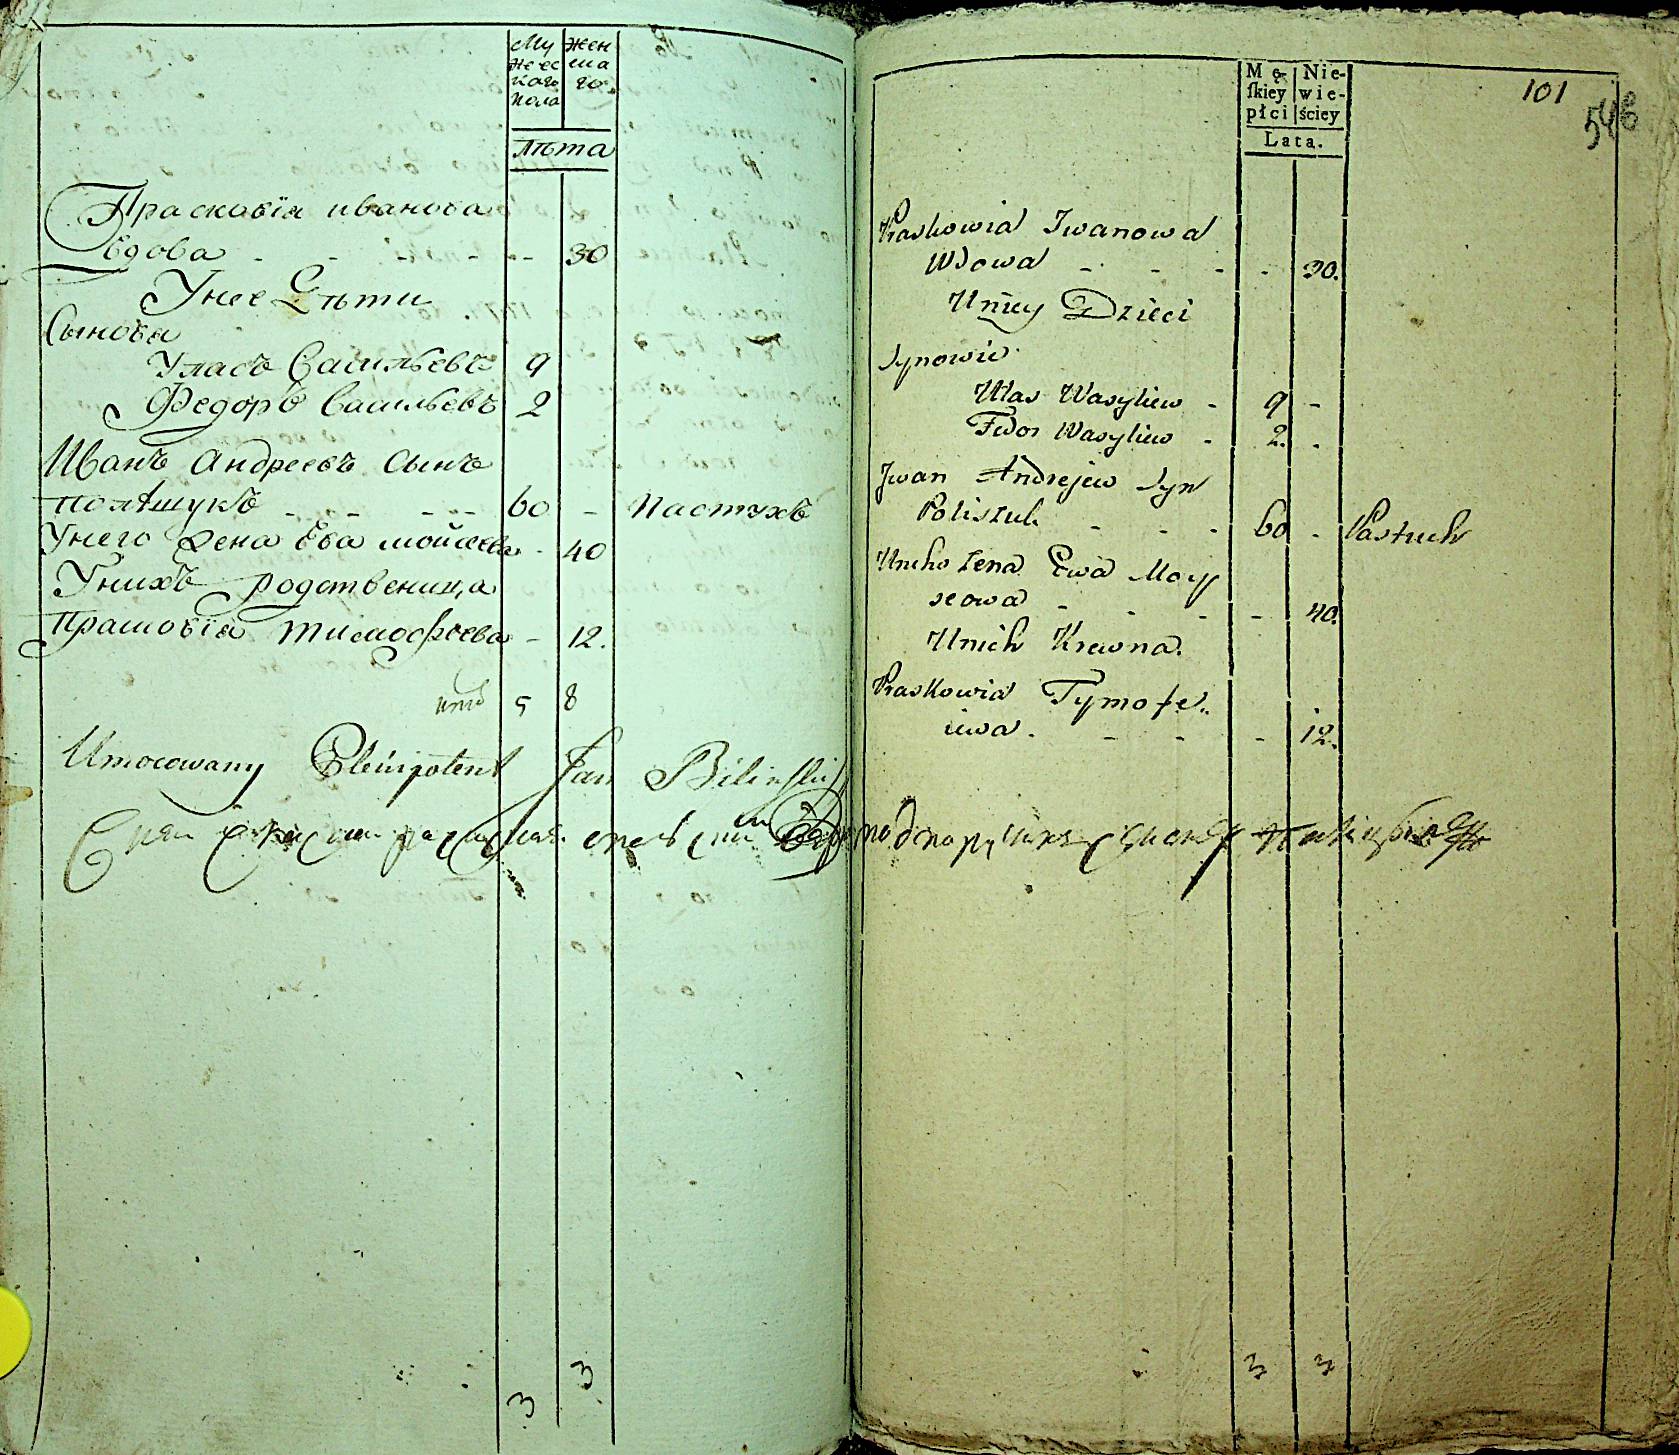 Му жес каго пола
жен ска го
Лѣта
Прасковїя иванова
вдова - - - - - 30
Унее Дѣти
Сыновя
Уласъ Васильевъ 9
Федоръ Васильевъ 2
Иванъ Андреевъ Сынъ
полѣшукъ - - - - 60 - Пастухъ
Унего Жена Ева мойсеева - 40
Унихъ родственица
Прасковїя тимофѣева - 12.
5 8
Umocowany Plenipotent Jan Biliński
3 3
101
546
Mę- skiey płci
Nie- wie- ściey
Lata.
Praskowia Iwanowa
Wdowa - - - - 30.
Uniey Dzieci
Synowie
Ułas Wasyliew - 9 -
Fedor Wasyliew - 2. -
Jwan Andrejew Syn
Poliszuk - - - 60 - Pastuch
Unieho żena Ewa Moy
seowa - - - - 40.
Unich Krewna.
Praskowia Tymofe..
iewa. - - - 12.
3 3